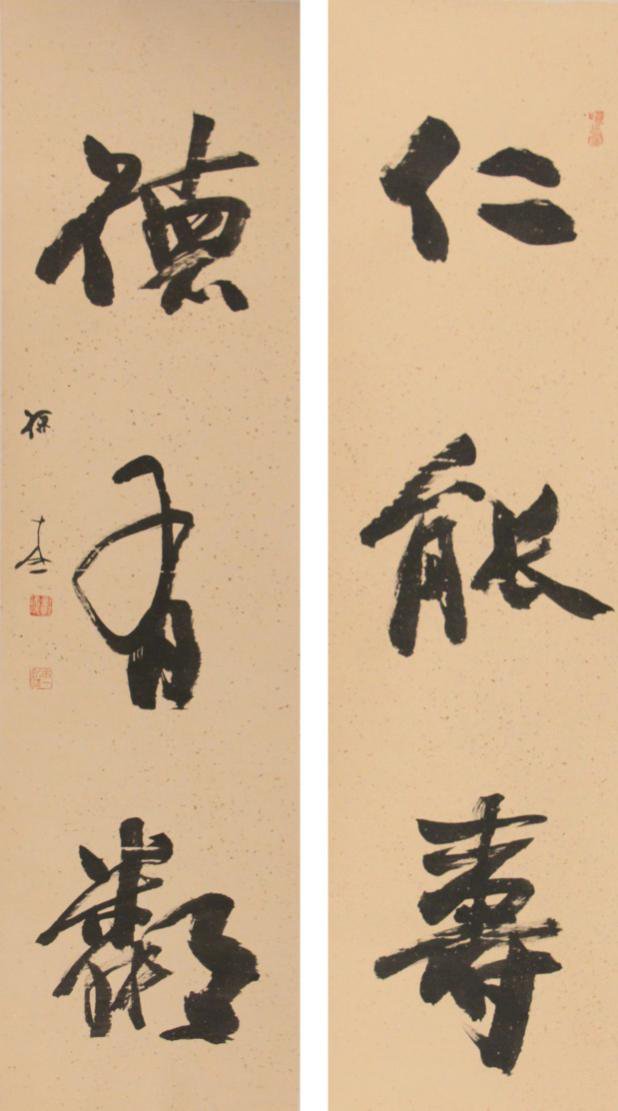 仁能壽
德有鄰